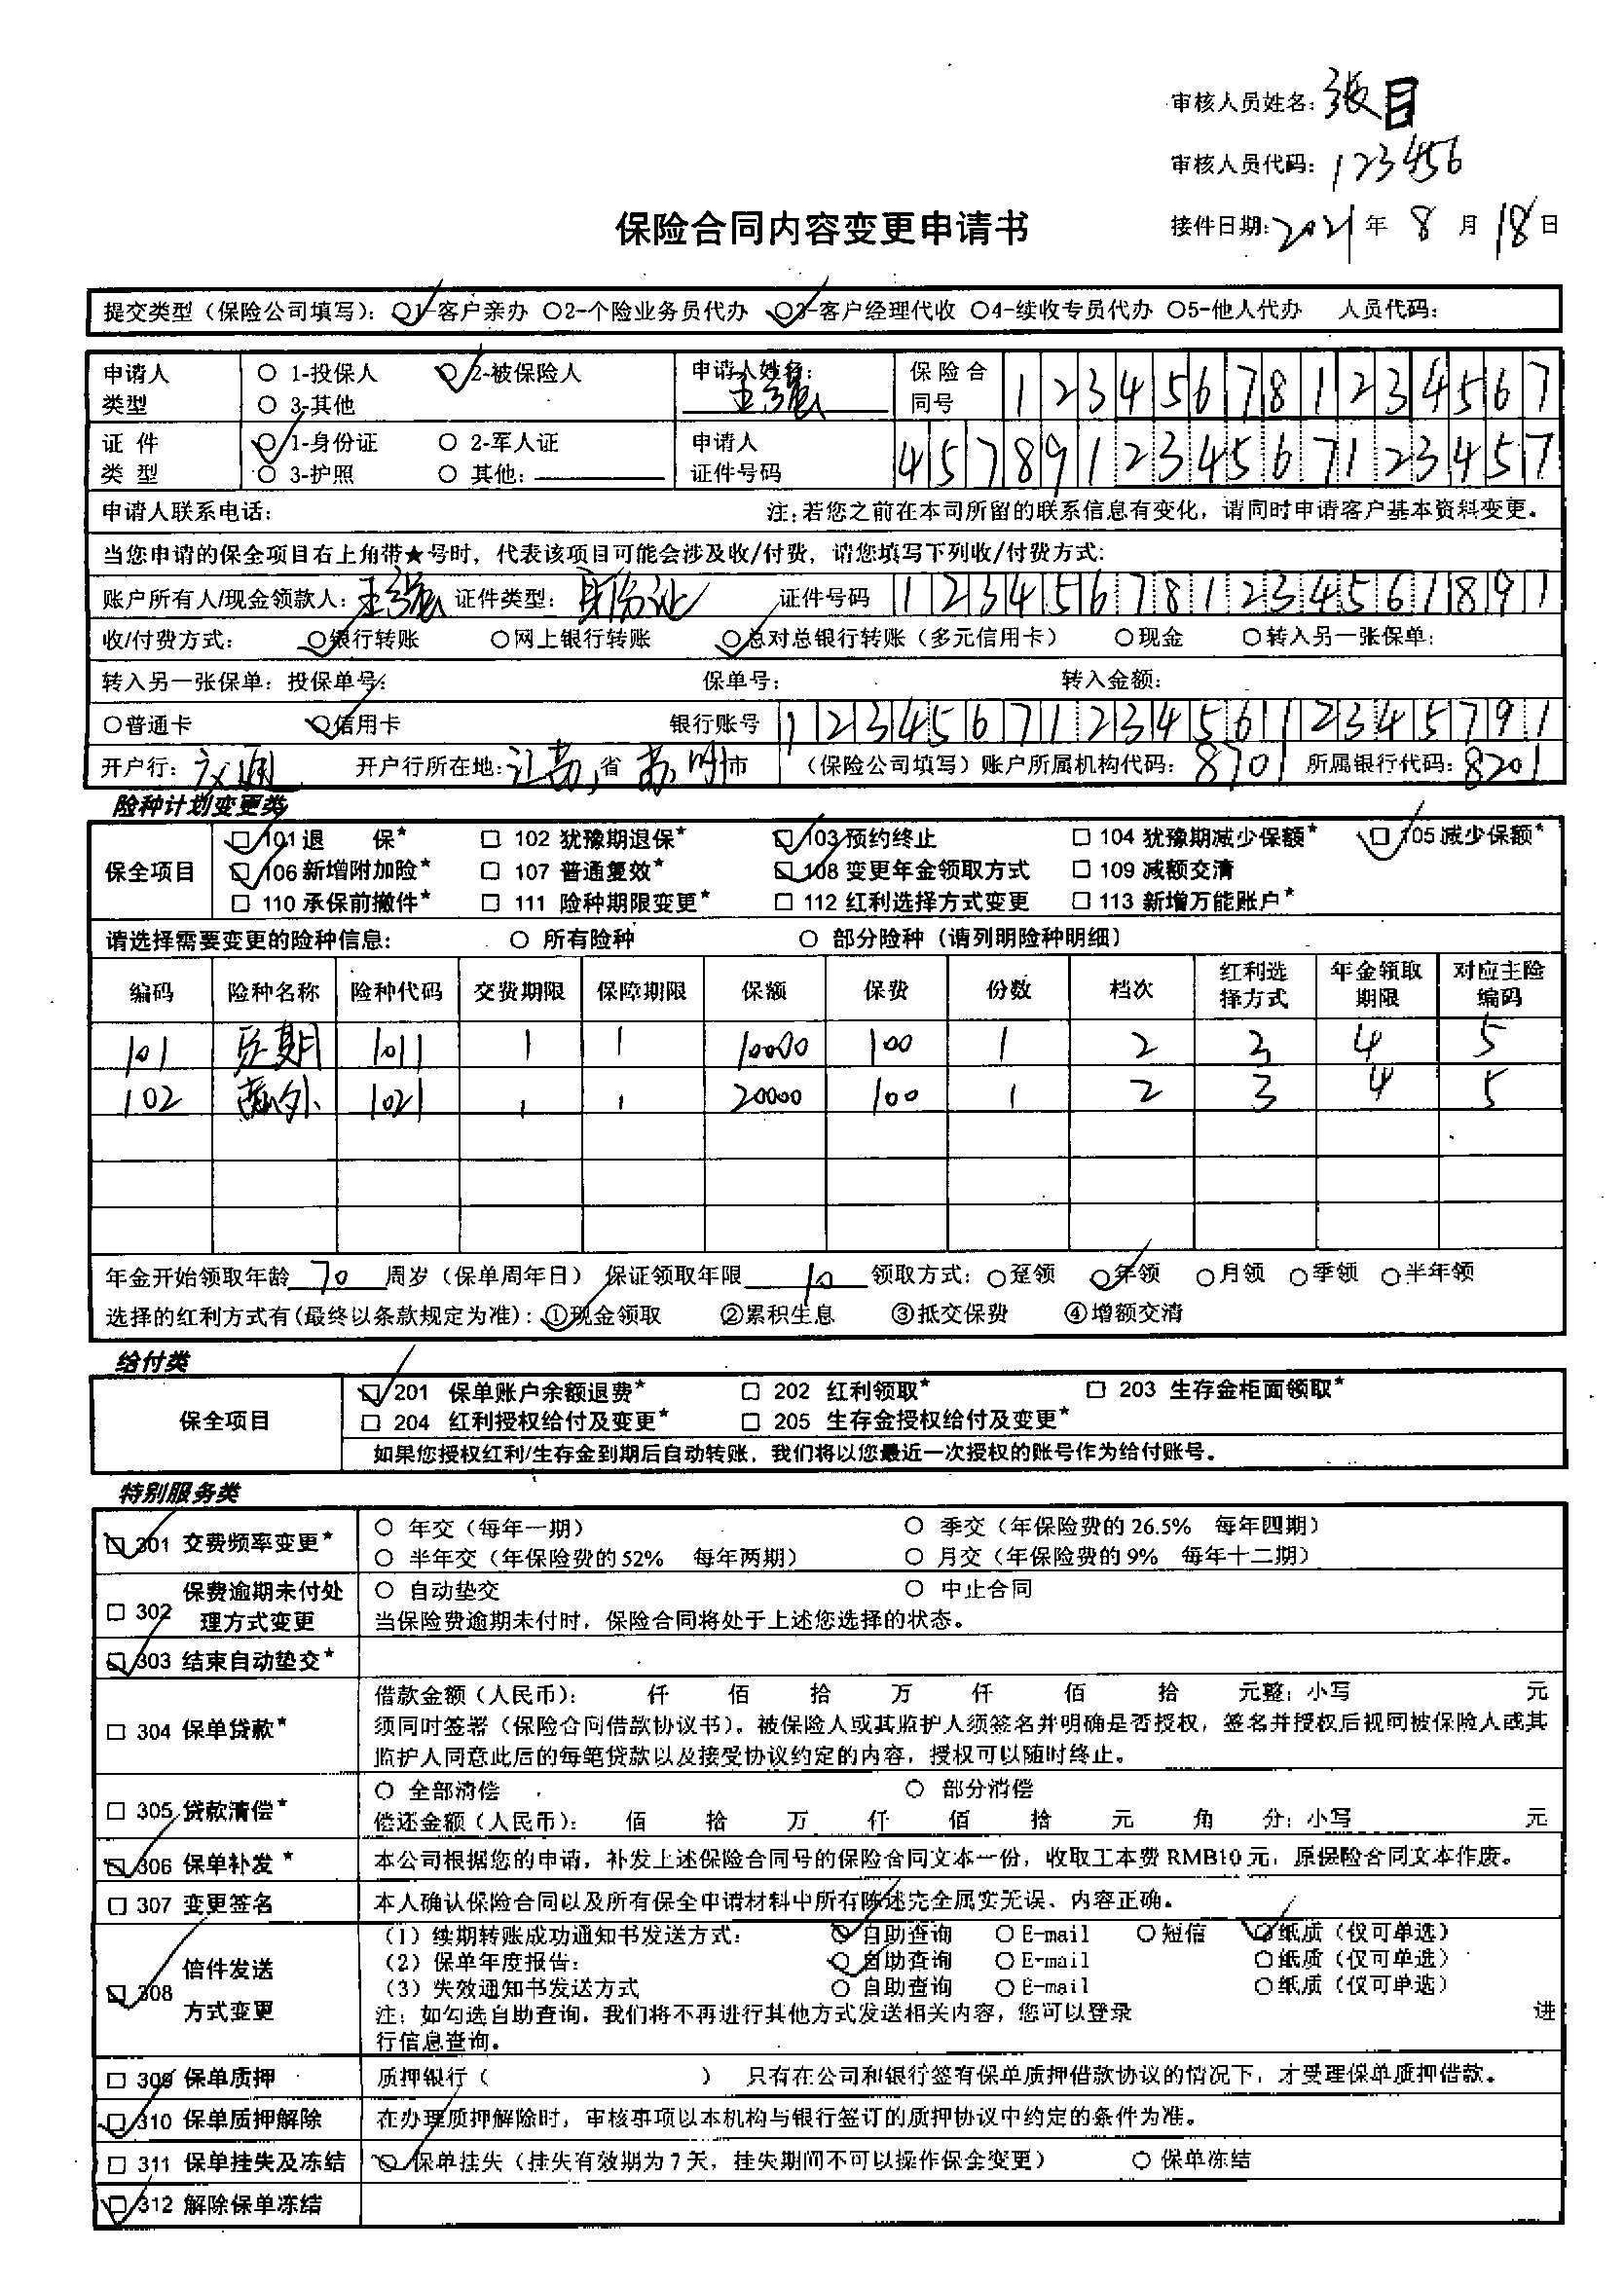 审核人员姓名：张目
审核人员代码：123456
保险合同内容变更申请书
接件日期：2021年8月18日
提交类型（保险公司填写）：○1-客户亲办 ○2-个险业务员代办 ○3-客户经理代收 ○4-续收专员代办 ○5-他人代办 人员代码：
申请人类型 ○ 1-投保人 ○ 2-被保险人 ○ 3-其他 申请人姓名：王强 保险合同号 123456781234567
证件类型 ○ 1-身份证 ○ 2-军人证 ○ 3-护照 ○ 其他： 申请人证件号码 457891234567123457
申请人联系电话： 注：若您之前在本司所留的联系信息有变化，请同时申请客户基本资料变更。
当您申请的保全项目右上角带★号时，代表该项目可能会涉及收/付费，请您填写下列收/付费方式：
账户所有人/现金领款人：王强 证件类型：身份证 证件号码 123456781234561891
收/付费方式： ○银行转账 ○网上银行转账 ○总对总银行转账（多元信用卡） ○现金 ○转入另一张保单：
转入另一张保单：投保单号： 保单号： 转入金额：
○普通卡 ○信用卡 银行账号 123456712345612345791
开户行：交通 开户行所在地：江苏省 苏州市 （保险公司填写）账户所属机构代码：8701 所属银行代码：8201
险种计划变更类
保全项目
□ 101 退 保★ □ 102 犹豫期退保★ □ 103 预约终止 □ 104 犹豫期减少保额★ □ 105 减少保额★
□ 106 新增附加险★ □ 107 普通复效★ □ 108 变更年金领取方式 □ 109 减额交清
□ 110 承保前撤件★ □ 111 险种期限变更★ □ 112 红利选择方式变更 □ 113 新增万能账户★
请选择需要变更的险种信息： ○ 所有险种 ○ 部分险种（请列明险种明细）
编码 险种名称 险种代码 交费期限 保障期限 保额 保费 份数 档次 红利选择方式 年金领取期限 对应主险编码
101 定期 1011 1 1 10000 100 1 2 3 4 5
102 意外 1021 1 1 20000 100 1 2 3 4 5
年金开始领取年龄 70 周岁（保单周年日） 保证领取年限 10 领取方式：○趸领 ○年领 ○月领 ○季领 ○半年领
选择的红利方式有(最终以条款规定为准)：①现金领取 ②累积生息 ③抵交保费 ④增额交清
给付类
保全项目
□ 201 保单账户余额退费★ □ 202 红利领取★ □ 203 生存金柜面领取★
□ 204 红利授权给付及变更★ □ 205 生存金授权给付及变更★
如果您授权红利/生存金到期后自动转账，我们将以您最近一次授权的账号作为给付账号。
特别服务类
□ 301 交费频率变更★
○ 年交（每年一期） ○ 季交（年保险费的 26.5% 每年四期）
○ 半年交（年保险费的 52% 每年两期） ○ 月交（年保险费的 9% 每年十二期）
□ 302 保费逾期未付处理方式变更
○ 自动垫交 ○ 中止合同
当保险费逾期未付时，保险合同将处于上述您选择的状态。
□ 303 结束自动垫交★
□ 304 保单贷款★
借款金额（人民币）： 仟 佰 拾 万 仟 佰 拾 元整；小写 元
须同时签署（保险合同借款协议书）。被保险人或其监护人须签名并明确是否授权，签名并授权后视同被保险人或其
监护人同意此后的每笔贷款以及接受协议约定的内容，授权可以随时终止。
□ 305 贷款清偿★
○ 全部清偿 ○ 部分清偿
偿还金额（人民币）： 佰 拾 万 仟 佰 拾 元 角 分；小写 元
□ 306 保单补发★ 本公司根据您的申请，补发上述保险合同号的保险合同文本一份，收取工本费 RMB10 元，原保险合同文本作废。
□ 307 变更签名 本人确认保险合同以及所有保全申请材料中所有陈述完全属实无误、内容正确。
□ 308 信件发送方式变更
（1）续期转账成功通知书发送方式： ○ 自助查询 ○ E-mail ○ 短信 ○纸质（仅可单选）
（2）保单年度报告： ○ 自助查询 ○ E-mail ○纸质（仅可单选）
（3）失效通知书发送方式 ○ 自助查询 ○ E-mail ○纸质（仅可单选）
注：如勾选自助查询，我们将不再进行其他方式发送相关内容，您可以登录 进
行信息查询。
□ 309 保单质押 质押银行（ ） 只有在公司和银行签有保单质押借款协议的情况下，才受理保单质押借款。
□ 310 保单质押解除 在办理质押解除时，审核事项以本机构与银行签订的质押协议中约定的条件为准。
□ 311 保单挂失及冻结 ○ 保单挂失（挂失有效期为 7 天，挂失期间不可以操作保全变更） ○ 保单冻结
□ 312 解除保单冻结